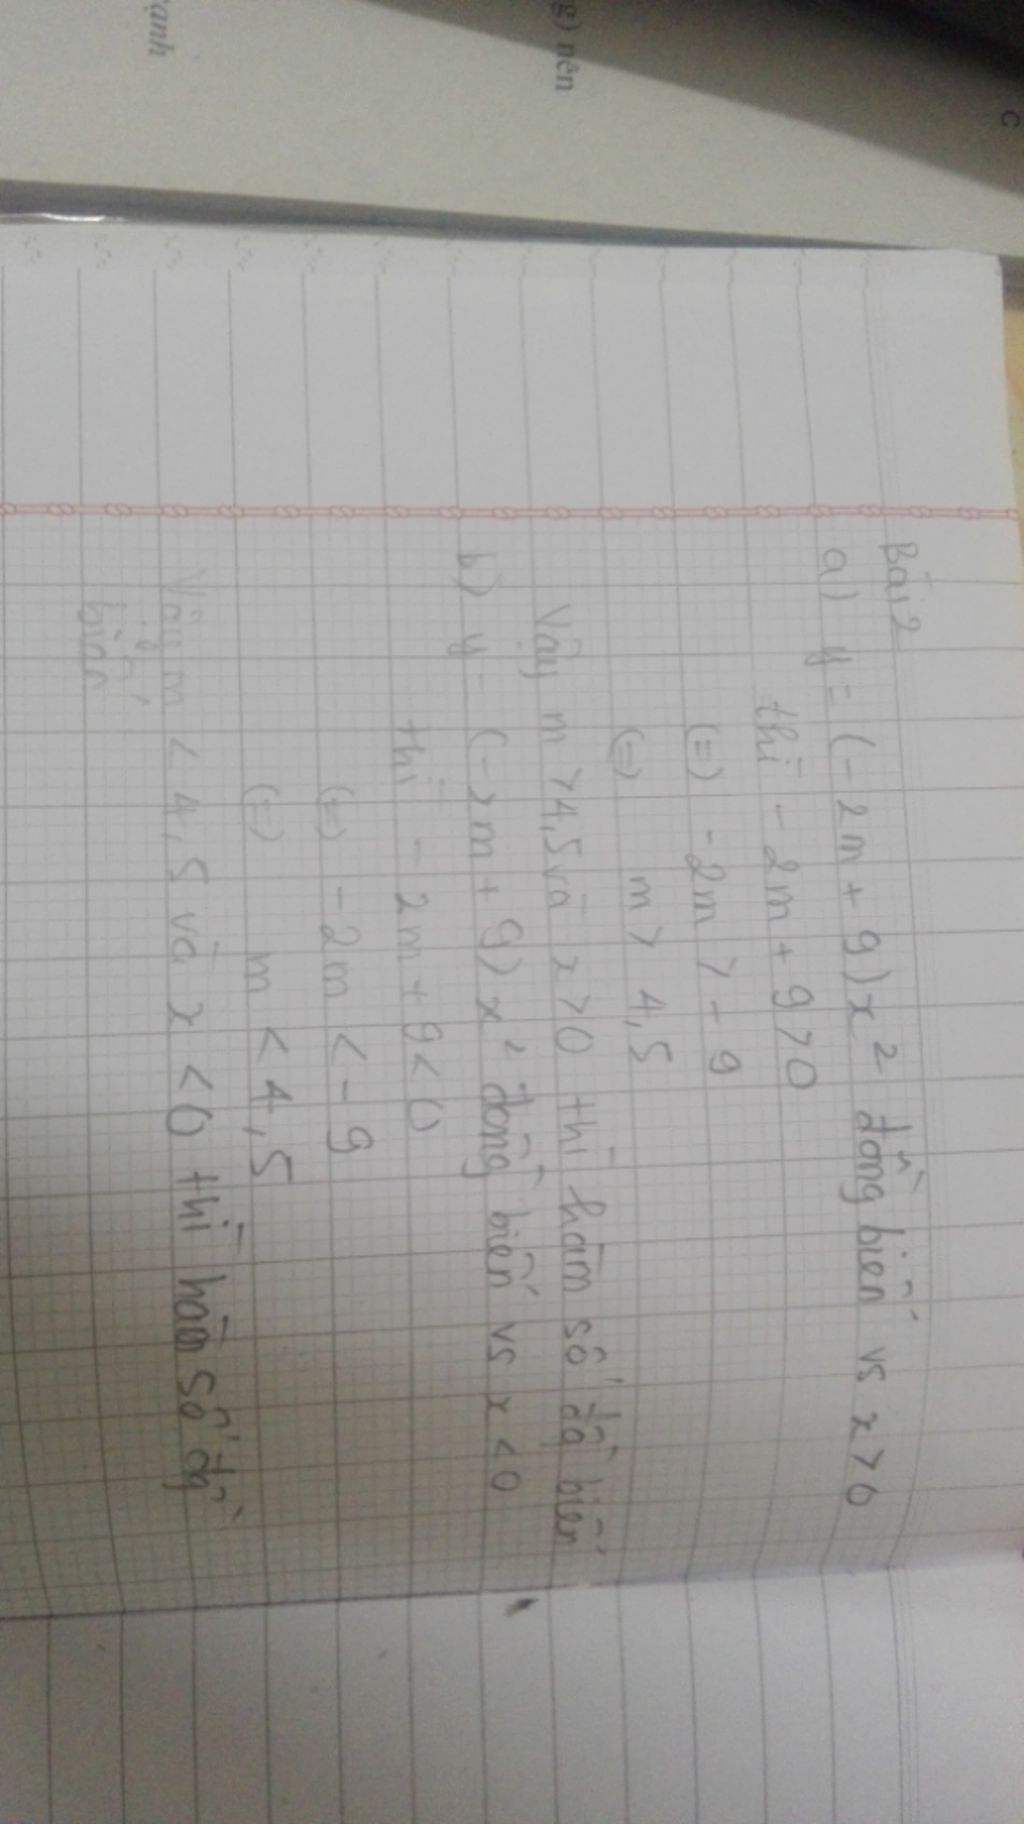 c
g) nên
ạnh
Bài 2
a) y = (-2m + 9)x² đồng biến vs x > 0
thì -2m + 9 > 0
(=) -2m > -9
(=) m > 4,5
Vậy m > 4,5 và x > 0 thì hàm số đồ biến
b) y = (-2m + 9)x² đồng biến vs x < 0
thì -2m + 9 < 0
(=) -2m < -9
(=) m < 4,5
Vậy m < 4,5 và x < 0 thì hàm số đg
biến